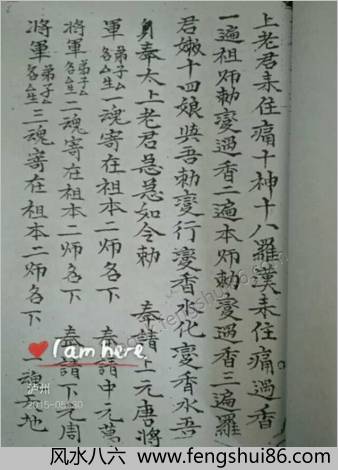 上老君来住痛十神十八羅漢来住痛過香
一遍祖师勅變過香二遍本师勅變過香三遍羅
君嫩十四娘與吾勅變行變香水化變香水吾
身奉太上老君急急如令勅 奉請上元唐將
軍弟子厶各厶生一魂寄在祖本二师名下 奉請中元萬
將軍弟子厶各厶生二魂寄在祖本二师名下 奉請下元周
將軍弟子厶各厶生三魂寄在祖本二师名下 地
I am here
泸州
2015-05-30
www.fengshui86.com
风水八六 www.fengshui86.com